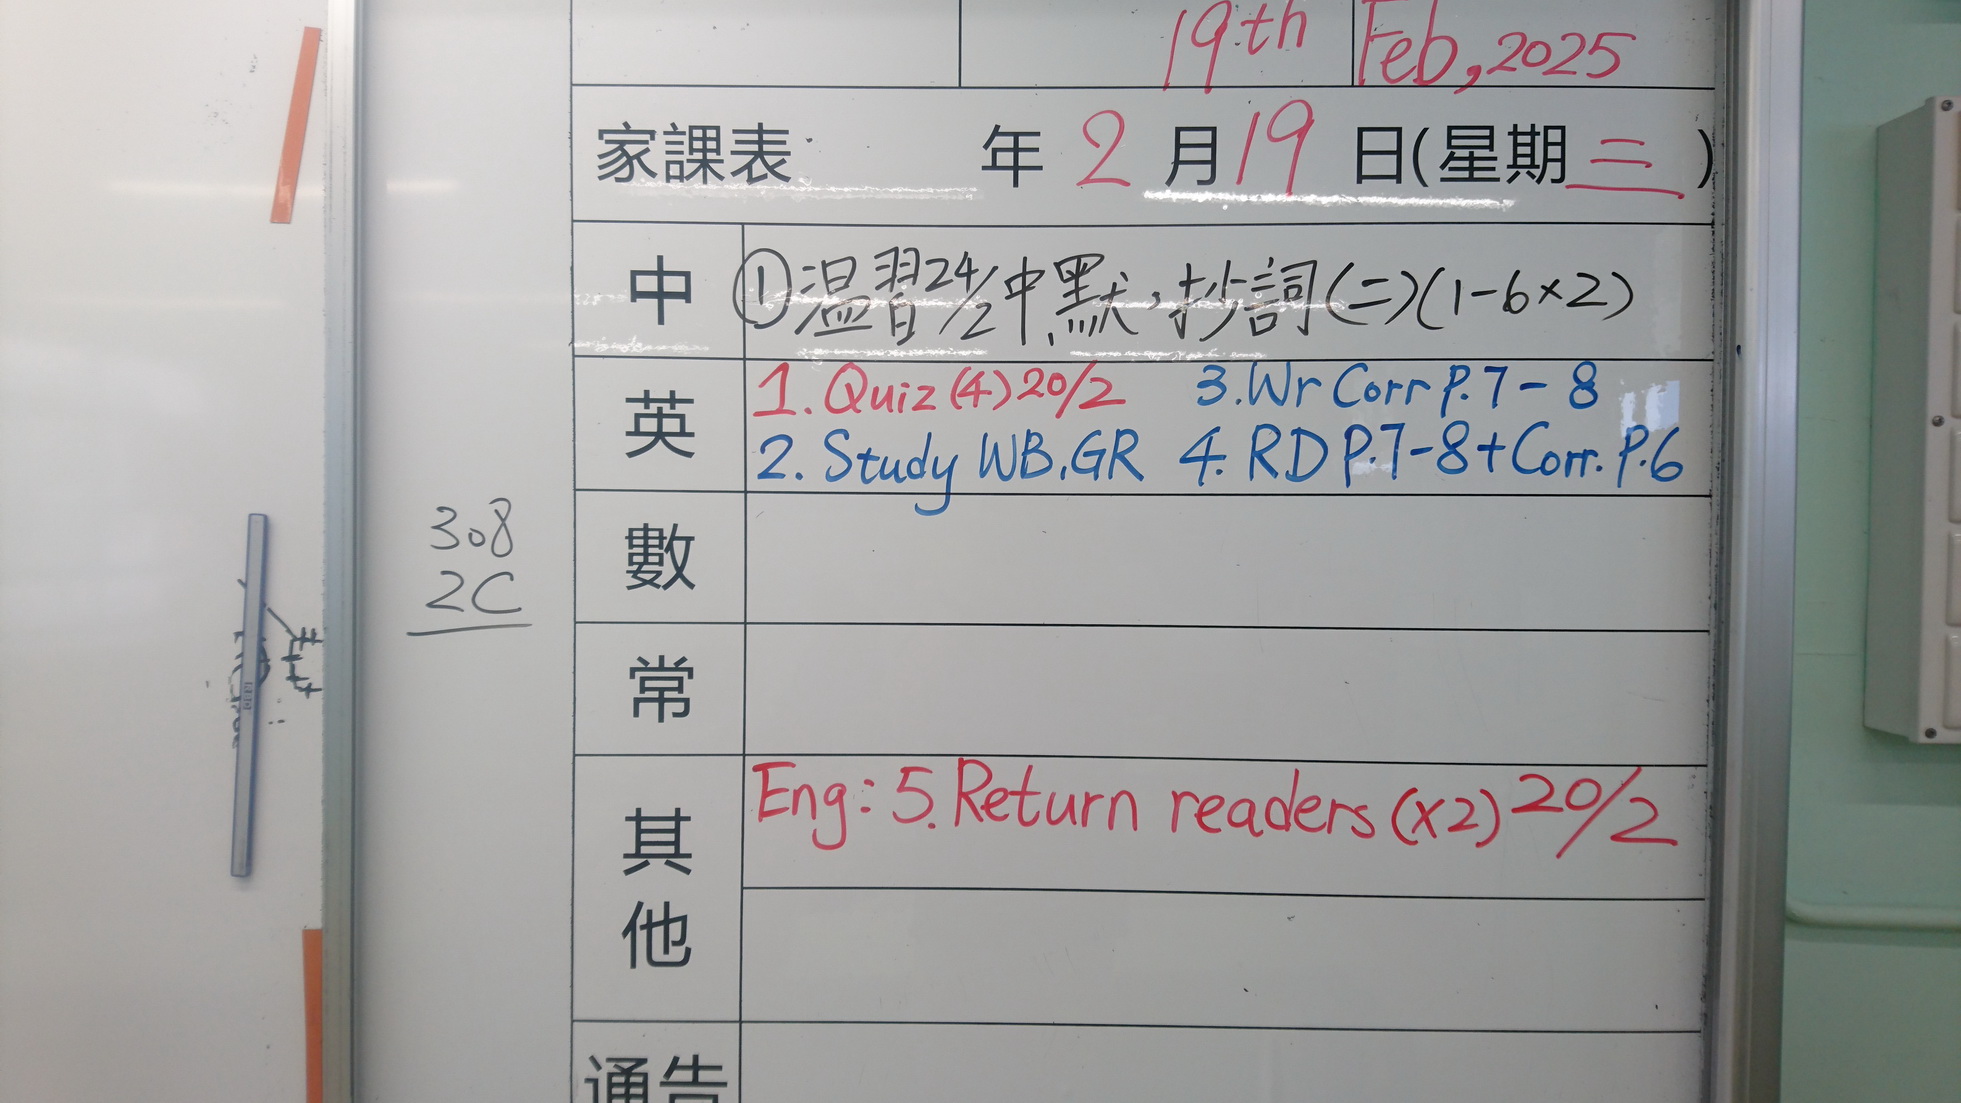 19th Feb, 2025
家課表 年 2 月 19 日(星期 三 )
中 ①温習24/2中默,抄詞(二)(1-6×2)
英 1. Quiz (4) 20/2 3. Wr Corr P.7-8
2. Study WB, GR 4. RD P.7-8 + Corr. P.6
數
常
其他 Eng: 5. Return readers (x2) 20/2
通告
308
2C